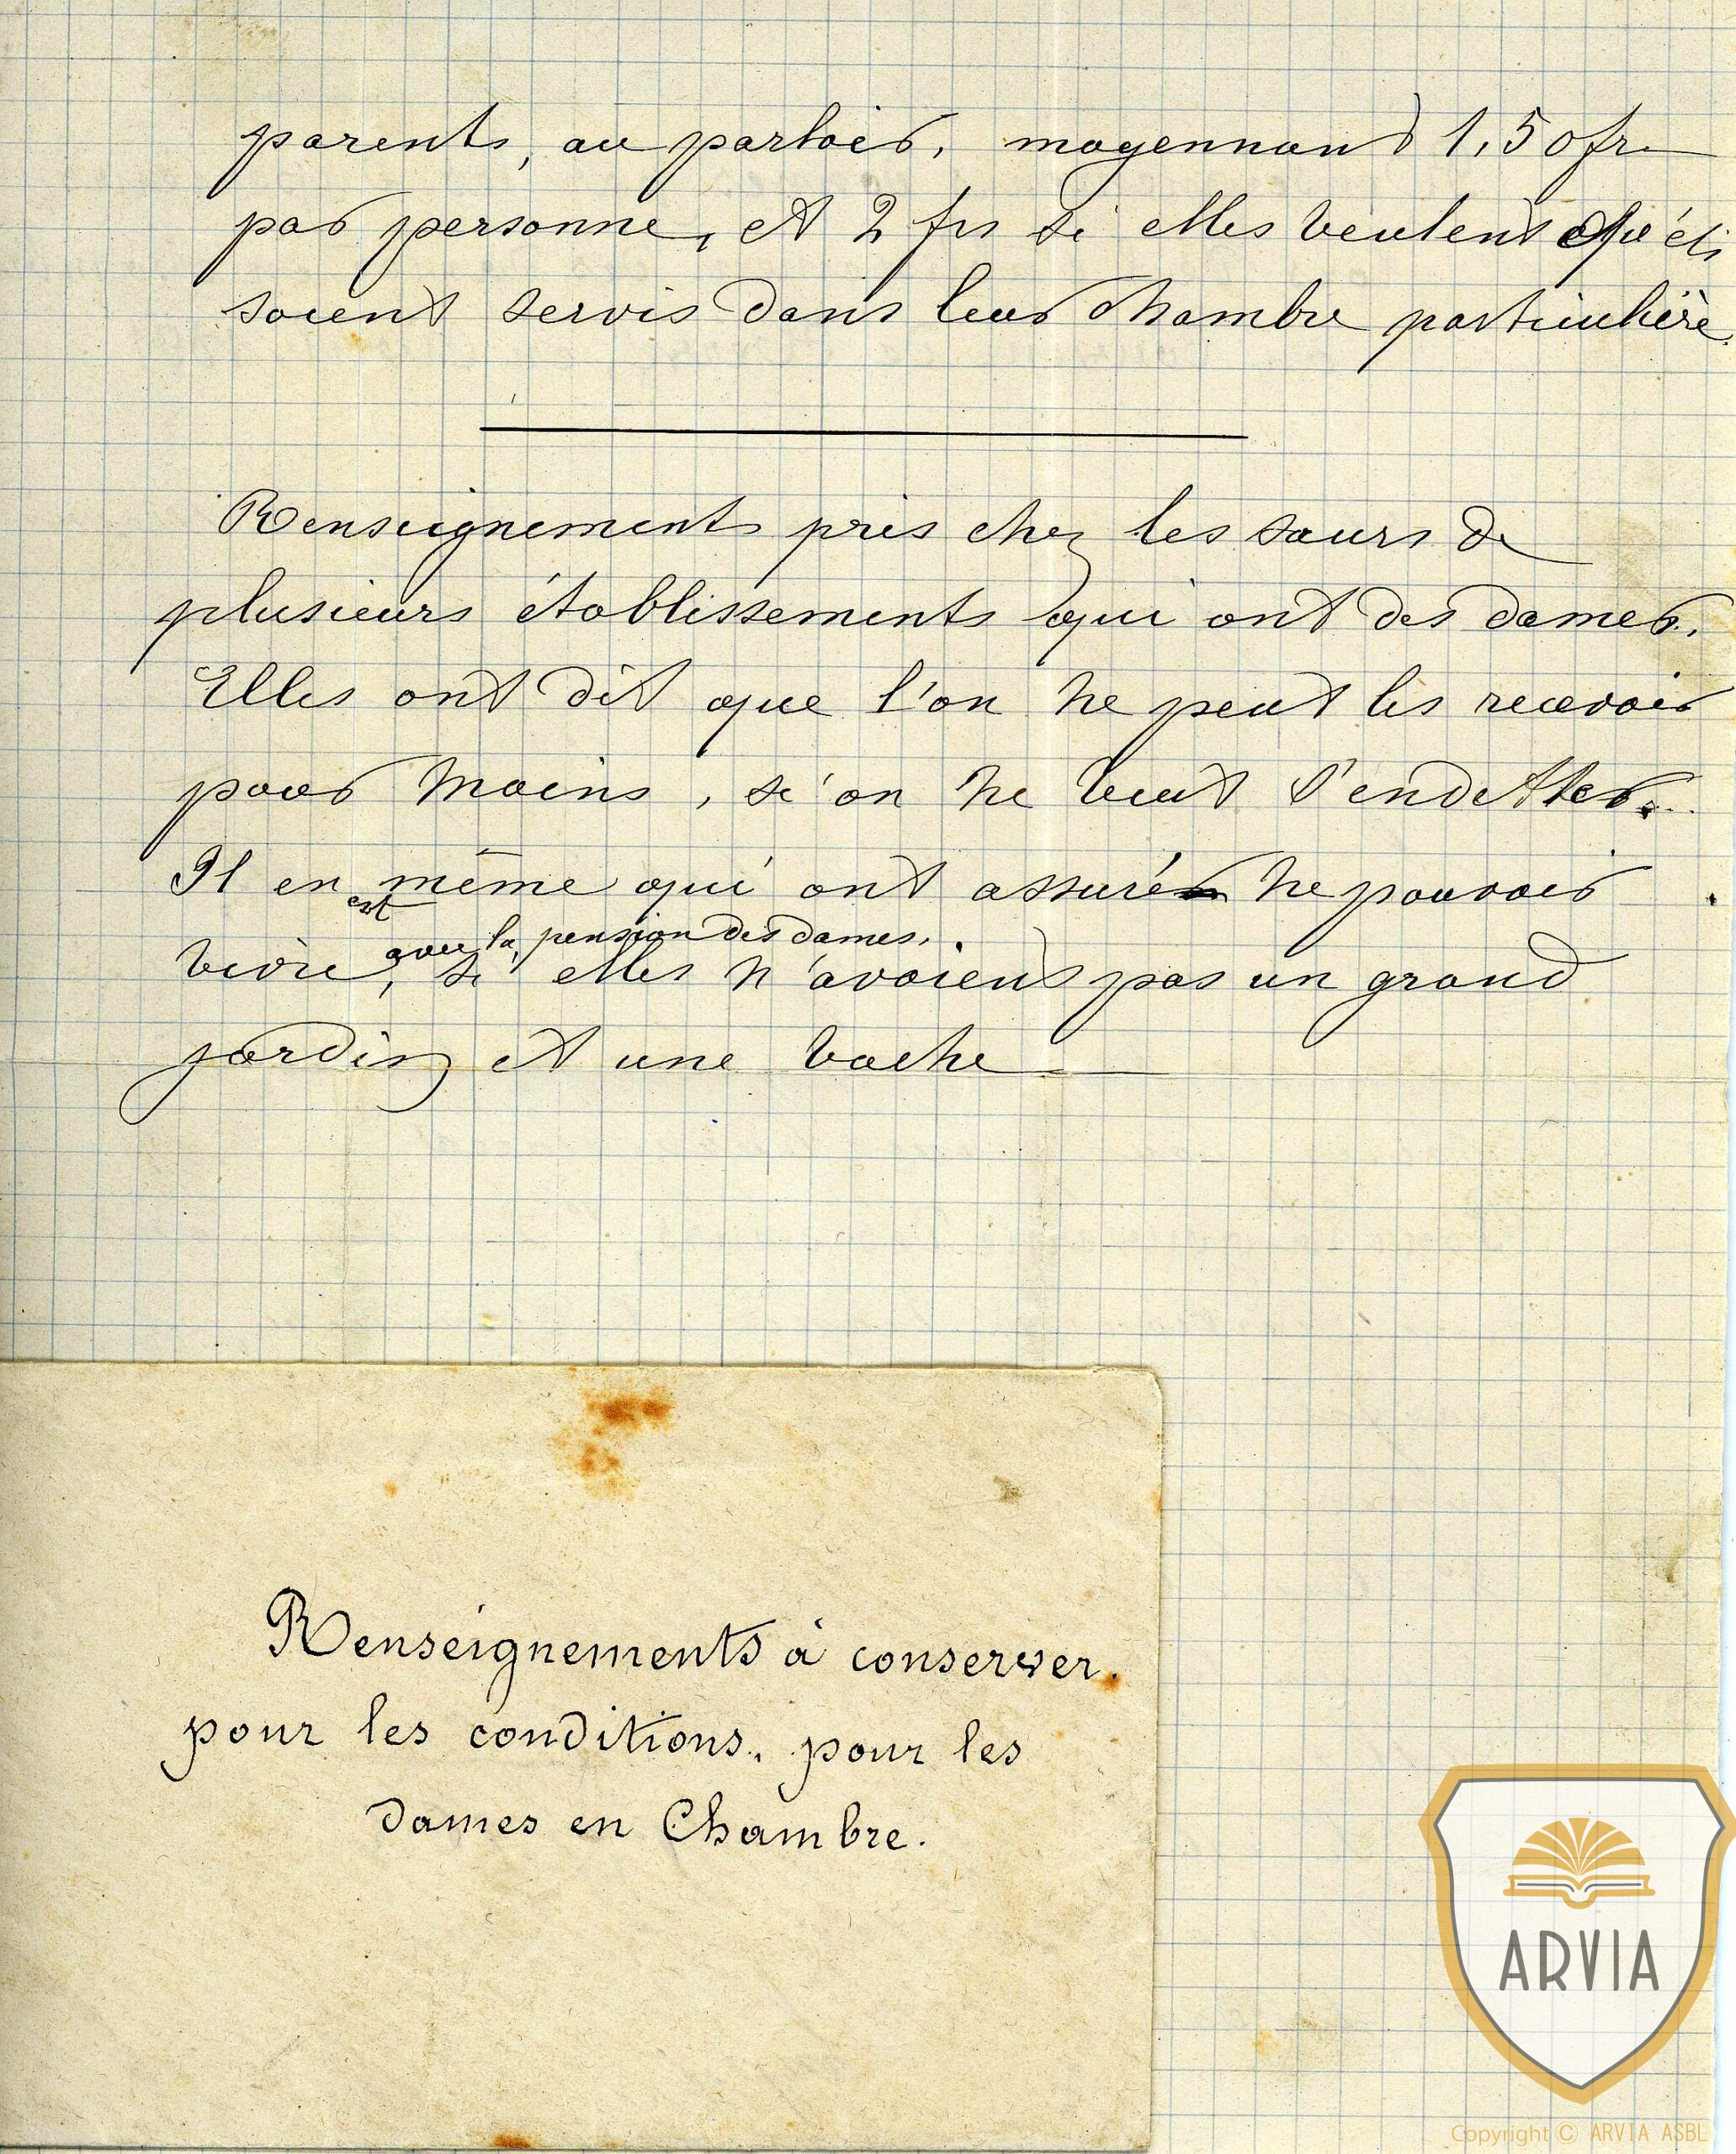 parents, au parloir, moyennant 1,50 fr.
par personne, et 2 frs si elles veulent qu'ils
soient servis dans leur chambre particulière.
Renseignements pris chez les sœurs de
plusieurs établissements qui ont des dames.
Elles ont dit que l'on ne peut les recevoir
pour moins, si on ne veut s'endetter.
Il en est même qui ont assuré ne pouvoir
vivre, avec la pension des dames, si elles n'avaient pas un grand
jardin et une vache
Renseignements à conserver.
pour les conditions. pour les
dames en Chambre.
ARVIA
Copyright © ARVIA ASBL